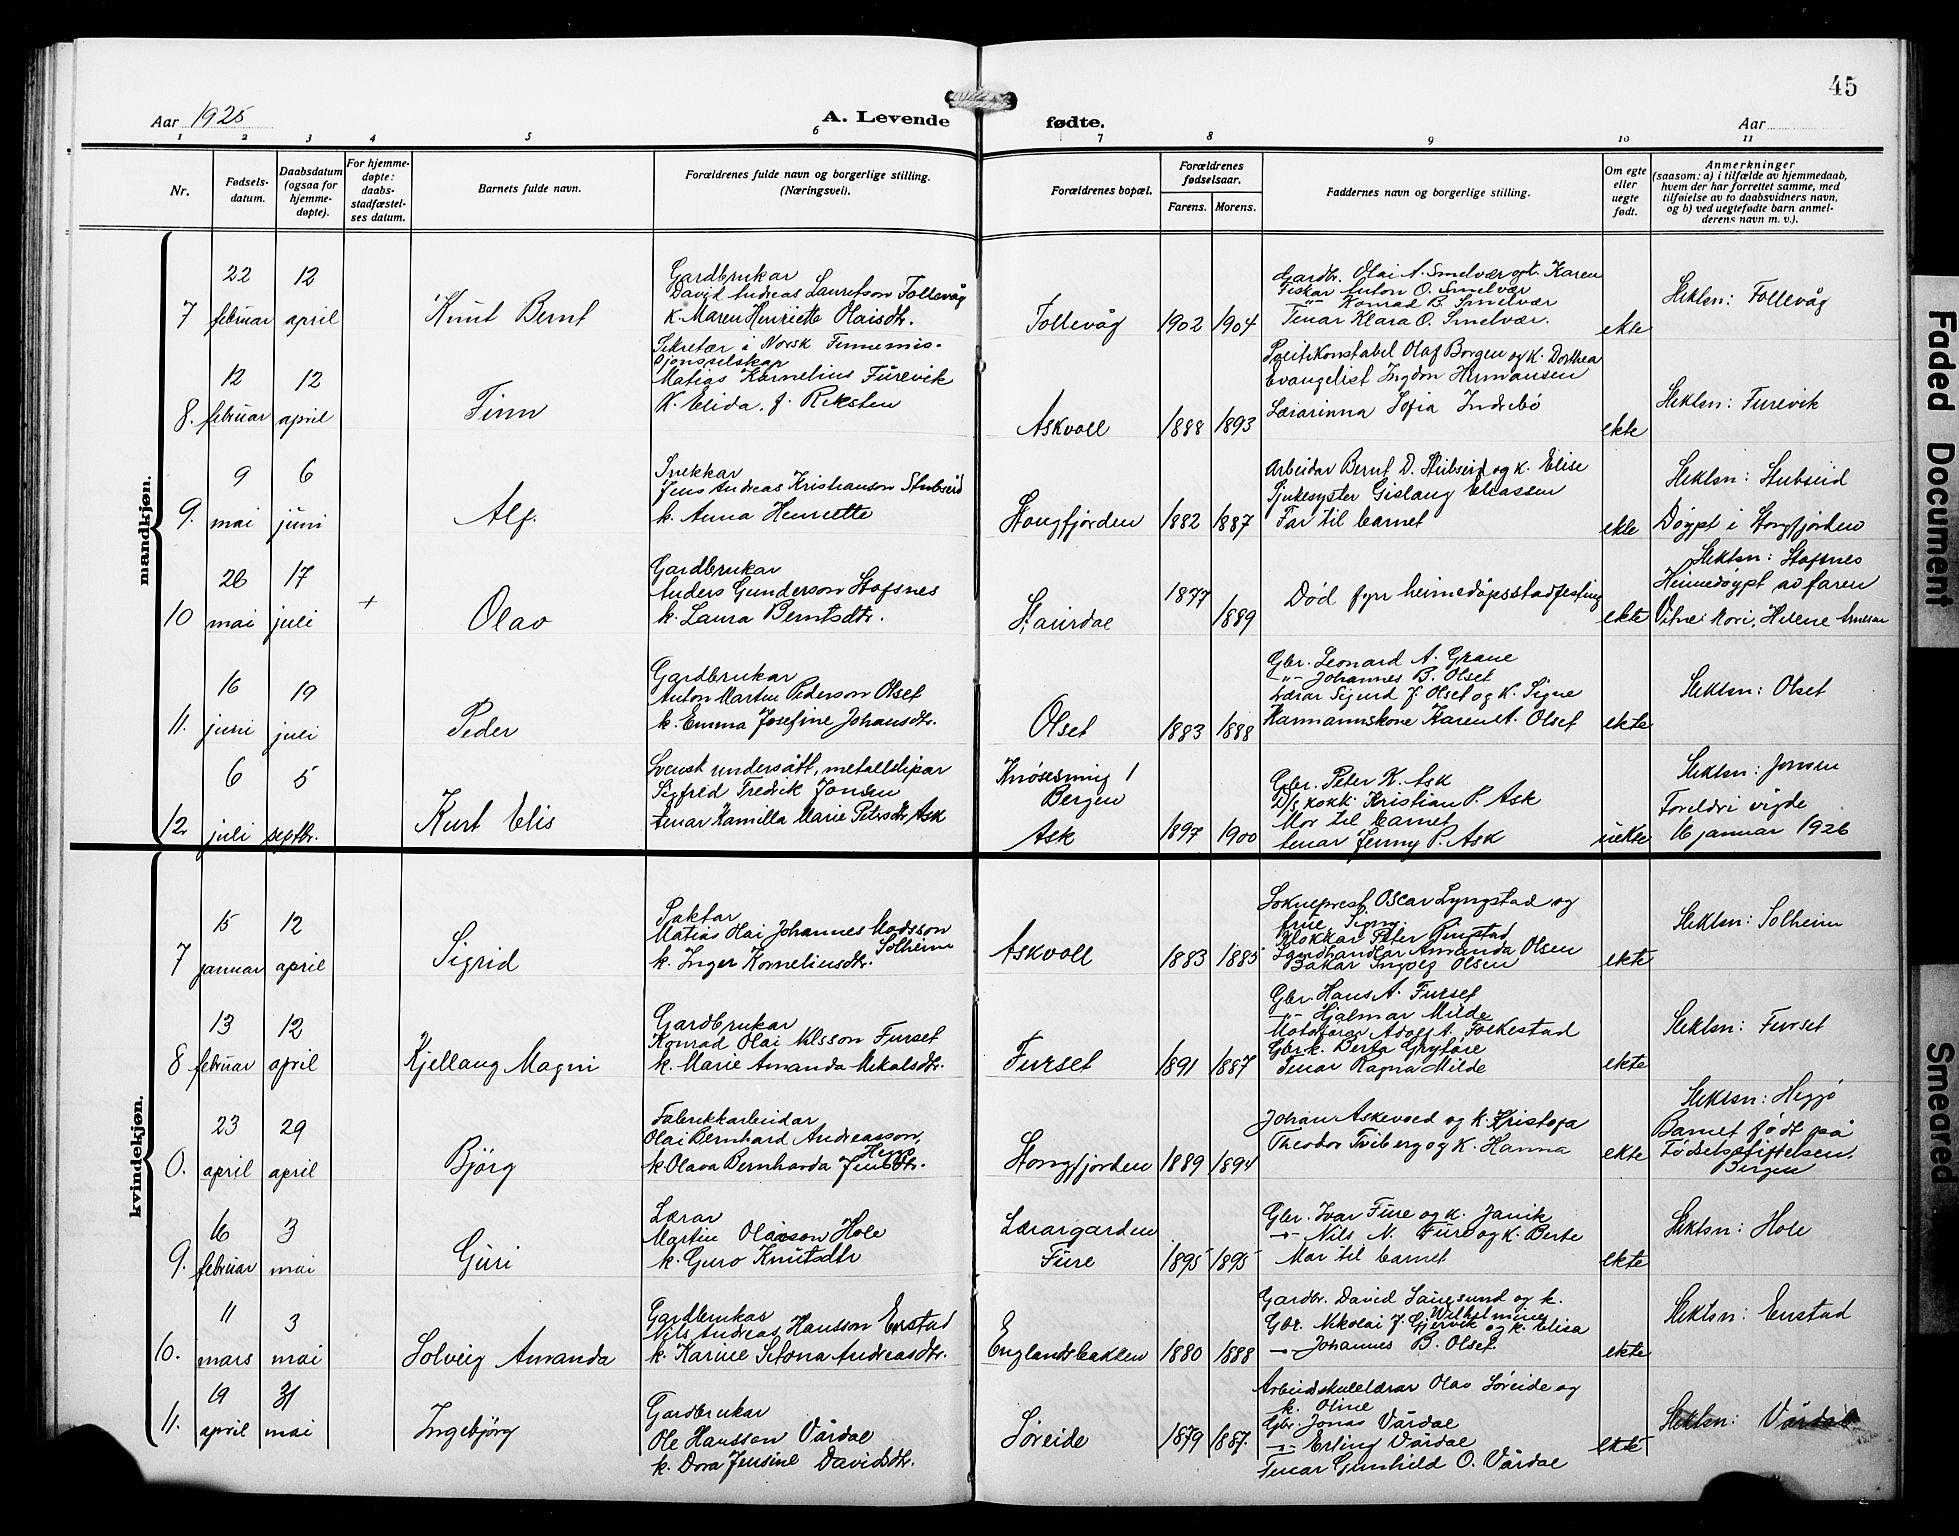 45
Aar 1925
A. Levende fødte.
Aar
1 2 3 4 5 6 7 8 9 10 11
Nr.
Fødsels-
datum.
Daabsdatum
(ogsaa for
hjemme-
døpte).
For hjemme-
døpte:
daabs-
stadfæstel-
ses datum.
Barnets fulde navn.
Forældrenes fulde navn og borgerlige stilling.
(Næringsvei).
Forældrenes bopæl.
Forældrenes
fødselsaar.
Farens. Morens.
Faddernes navn og borgerlige stilling.
Om egte
eller
uegte
født.
Anmerkninger
(saasom: a) i tilfælde av hjemmedaab,
hvem der har forrettet samme, med
tilføielse av to daabsvidners navn,
og b) ved uegtefødte barn anmel-
derens navn m. v.).
mandkjøn.
7
22
februar
12
april
Knut Bernt
Gardbrukar
David Andreas Lauritson Follevåg
k. Maren Henriette Olaisdtr.
Follevåg
1902 1904
Gardbr. Olai A. Smelvær og k. Karen
Fiskar Anton O. Smelvær
-"- Konrad B. Smelvær
Tenar Klara O. Smelvær.
ekte
Slektsn: Follevåg
8.
12
februar
12
april
Finn
Sekretær i Norsk Finnemis-
sjonsselskap
Matias Kornelius Furevik
k. Elida. J. Riksten
Askvoll
1888 1893
Politikonstabel Olaf Borgen og k. Dorthea
Evangelist Hermansen
Lærarinna Sofia Indrebø
ekte
Slektsn: Furevik
9.
9
mai
6
juni
Alf.
Snekkar
Jens Andreas Kristianson Stubseid
k. Anna Henriette
Stongfjorden
1882 1887
Arbeidar Bernt D. Stubseid og k. Elise
Sjukesyster Gislaug Eliassen
Far til barnet
ekte
Slektsn: Stubseid
Døypt i Stongfjorden
10
26
mai
17
juli
+
Olav
Gardbrukar
Anders Gunderson Stafsnes
k. Laura Berntsdtr.
Staurdal
1877 1889
Død fyrr heimedåpsstadfesting
ekte
Slektsn: Stafsnes
Heimedøypt av faren
Vitne: Mori, Helene
11.
16
juni
19
juli
Peder
Gardbrukar
Anton Martin Pederson Olset
k. Emma Josefine Johansdtr.
Olset
1883 1888
Gbr. Leonard A. Grane
-"- Johannes B. Olset
Lærar Sigurd J. Olset og k. Signe
Kårmannskone Karen A. Olset
ekte
Slektsn: Olset
12.
6
juli
5
septbr.
Kurt Elis
Svensk undersått, metallslipar
Sigfred Fredrik Jonsen
tenar Kamilla Marie Petersdtr. Ask
Knøsesmug 1
Bergen
Ask
1897 1900
Gbr. Peter K. Ask
D/s kokk Kristian P. Ask
Mor til barnet
tenar Jenny P. Ask
uekte
Slektsn: Jonsen
Foreldri vigde
16 januar 1926
kvindekjøn.
7
15
januar
12
april
Sigrid
Paktar
Matias Olai Johannes Madsson
Solheim
k. Inger Korneliusdtr.
Askvoll
1883 1885
Sokneprest Oscar Lyngstad og
frue Signy.
Klokkar Peter Ringstad
Landhandlar Amanda Olsen
Bakar Ingolg Olsen
ekte
Slektsn: Solheim
8
13
februar
12
april
Kjellaug Magni
Gardbrukar
Konrad Olai Nilsson Furset
k. Marie Amanda Mikalsdtr.
Furset
1891 1887
Gbr. Hans A. Furset
-"- Hjalmar Milde
Motorførar Adolf A. Folkestad
Gbr.k. Berta Grytøre
Tenar Ragna Milde
ekte
Slektsn: Furset
23
april
29
april
Bjørg
Fabrikkarbeidar
Olai Bernhard Andreasson,
k. Olava Bernharda Jensdtr.
Stongfjorden
1889 1894
Johan Askevold og k. Kristofa
Theodor Tviberg og k. Hanna
ekte
Barnet født på
Fødselsstiftelsen.
Bergen
9.
16
februar
3
mai
Guri
Lærar
Martin Olaison Hole
k. Guro Knutsdtr
Lærargarden
Fure
1895 1895
Gbr. Ivar Fure og k. Janik
-"- Nils N. Fure og k. Berte
Mor til barnet
ekte
Slektsn: Hole
10.
11
mars
3
mai
Solveig Amanda
Gardbrukar
Nils Andreas Hansson Enstad
k. Karine Setona Andreasdtr.
Englandsbakken
1880 1888
Gardbr. David Sauesund og k.
Wilhelmine
Gbr. Nikolai J. Gjervik og k. Elisa
-"- Johannes B. Olset.
ekte
Slektsn: Enstad
11.
19
april
31
mai
Ingebjørg
Gardbrukar
Ole Hansson Vårdal
k. Dora Jensine Davidsdtr.
Søreide
1879 1887.
Arbeidskulelærar Olav Søreide og
k. Oline
Gbr. Jonas Vårdal
-"- Erling Vårdal
Tenar Gunhild O. Vårdal
ekte
Slektsn: Vårdal
Faded Document
Smeared